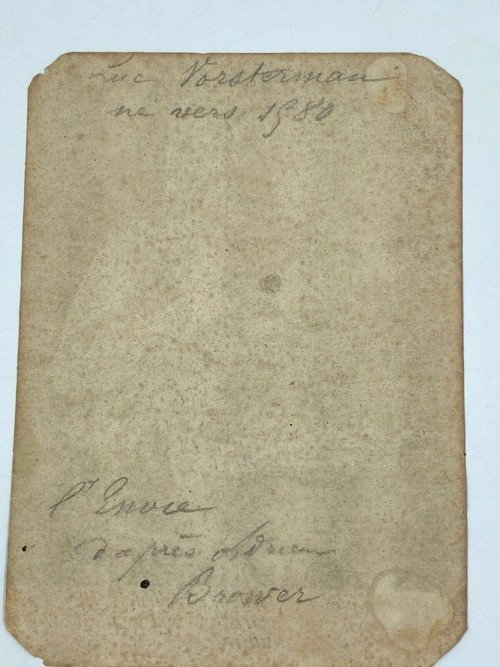 Luc Vorsterman
né vers 1580
l'Envie
d'après Adrien
Brower